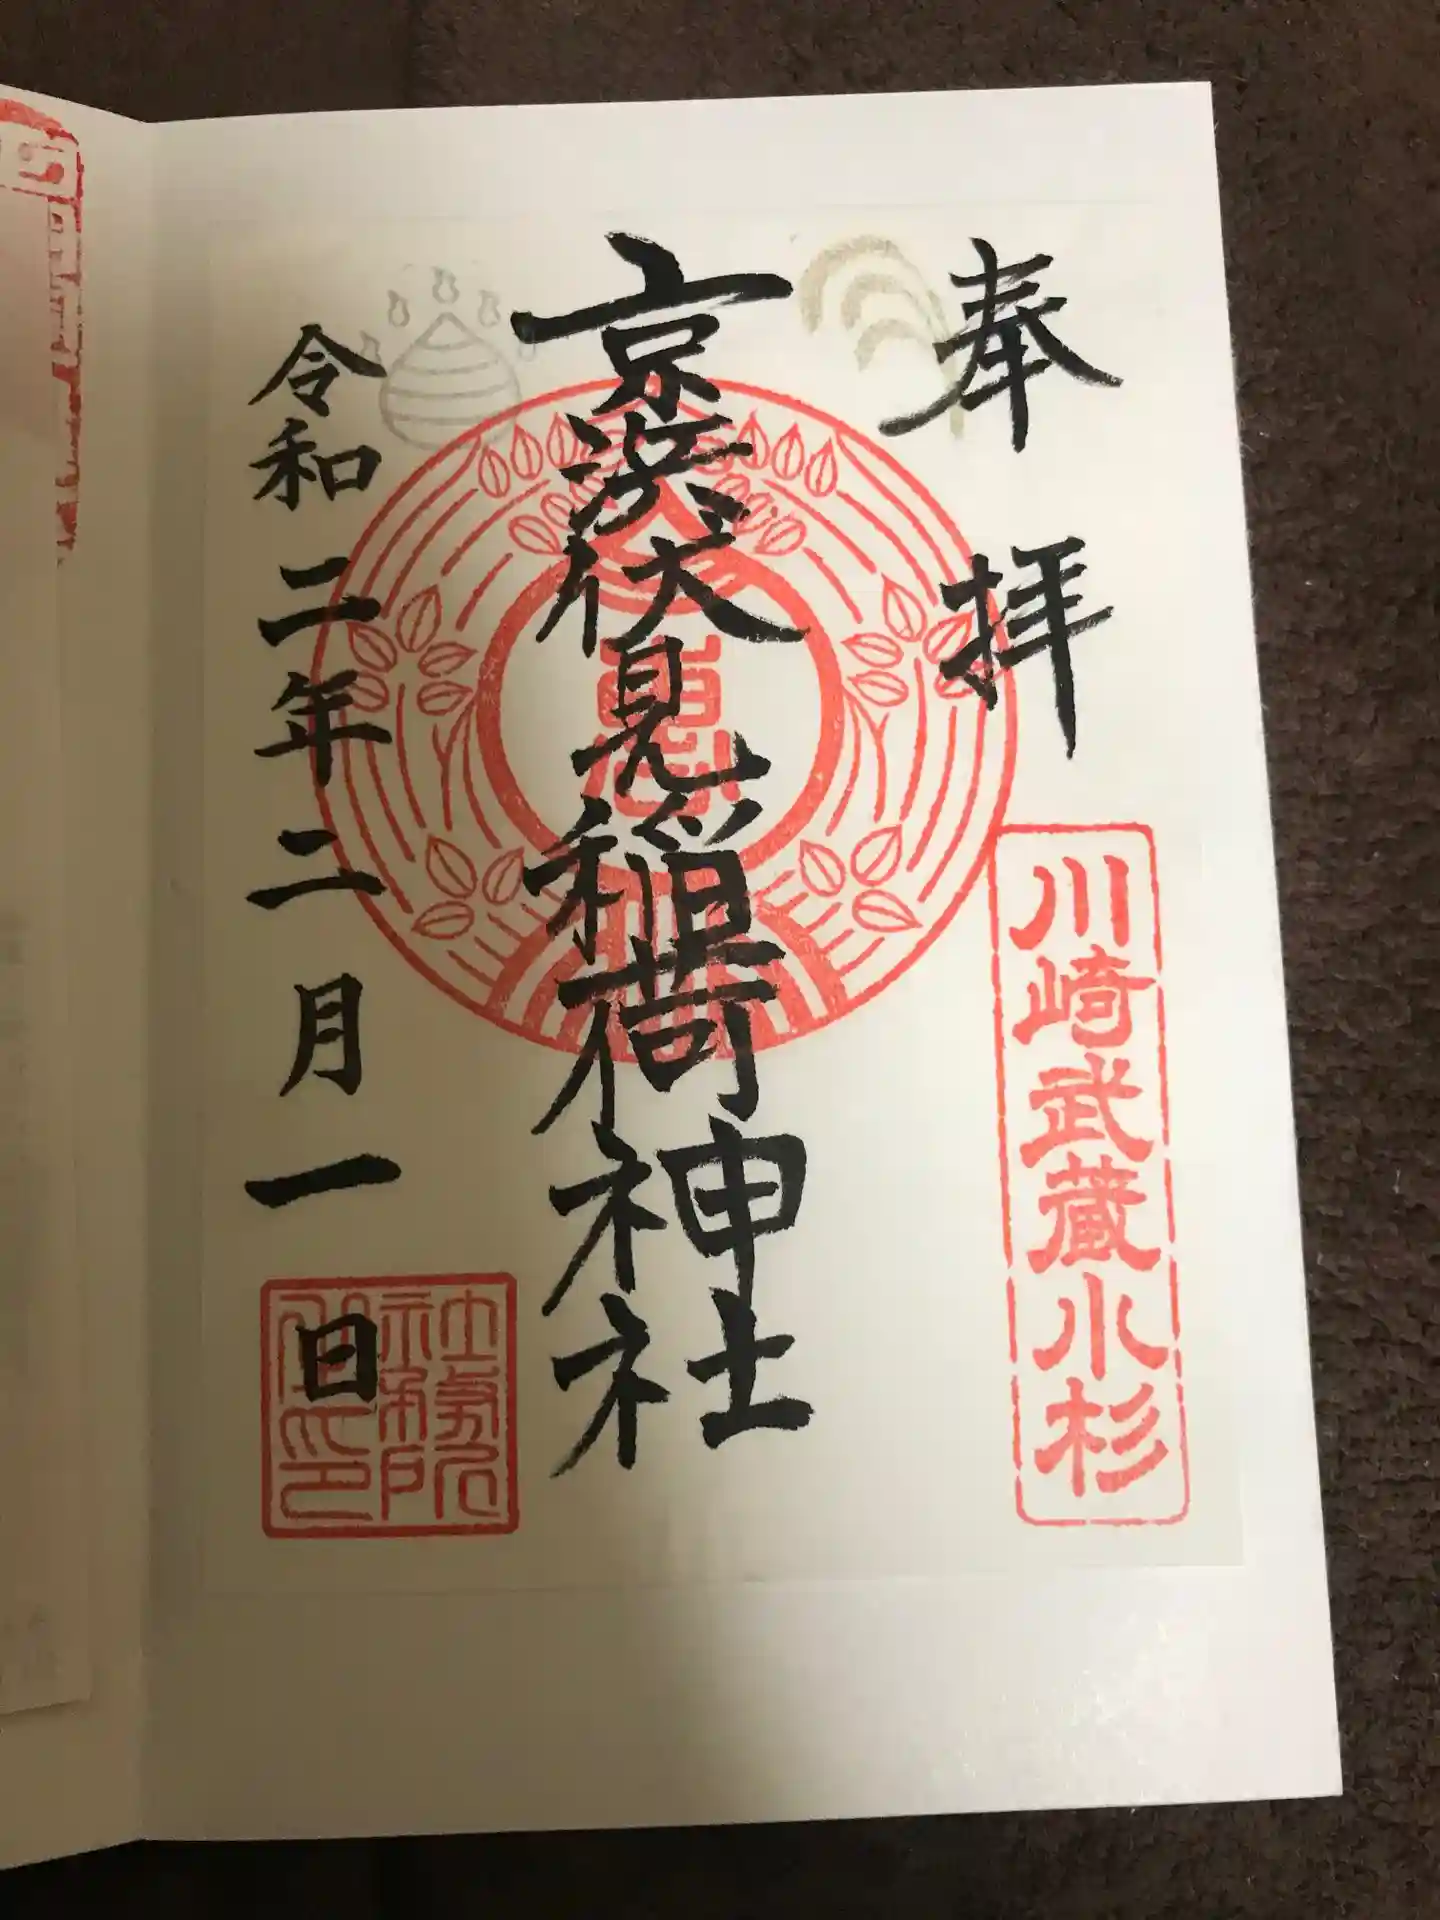 奉拝
川崎武蔵小杉
京濱伏見稲荷神社
令和二年二月一日
社務所